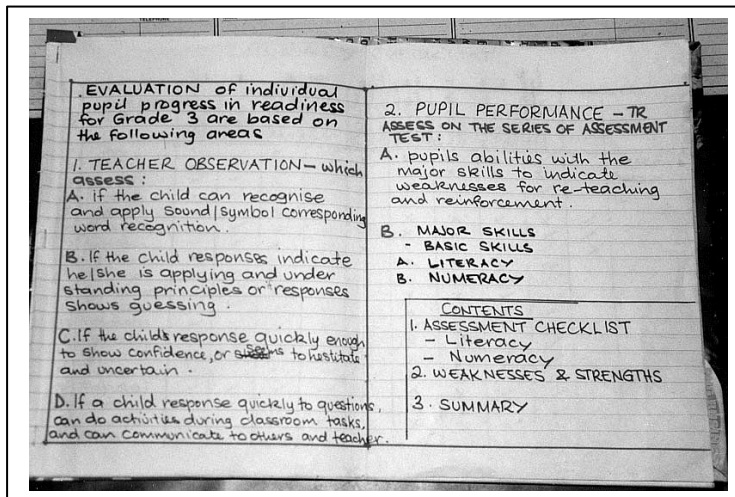 TELEPHONE
EVALUATION of individual
pupil progress in readiness
for Grade 3 are based on
the following areas
1. TEACHER OBSERVATION – which
assess :
A. if the child can recognise
and apply sound/symbol corresponding
word recognition .
B. If the child responses indicate
he/she is applying and under
standing principles or responses
shows guessing .
C. If the childs response quickly enough
to show confidence, or seems to hestitate
and uncertain .
D. If a child response quickly to questions,
can do activities during classroom tasks,
and can communicate to others and teacher.
2. PUPIL PERFORMANCE – TR
ASSESS ON THE SERIES OF ASSESSMENT
TEST :
A. pupils abilities with the
major skills to indicate
weaknesses for re-teaching
and reinforcement .
B. MAJOR SKILLS
- BASIC SKILLS
A. LITERACY
B. NUMERACY
CONTENTS
1. ASSESSMENT CHECKLIST
– Literacy
– Numeracy
2. WEAKNESSES & STRENGTHS
3. SUMMARY